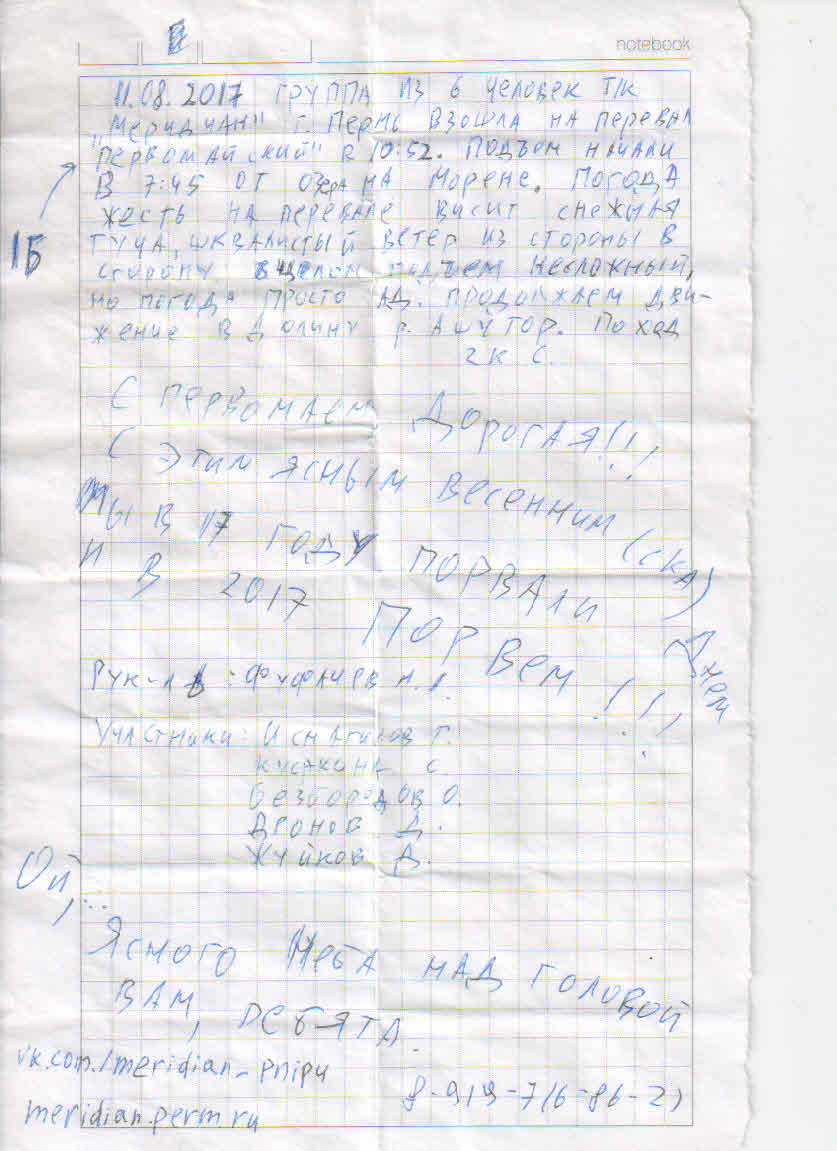 notebook
11.08.2017 ГРУППА ИЗ 6 человек Т/К
"Меридиан" г. Пермь взошла на перевал
"Первомайский" в 10:52. Подъем начали
1Б
В 7:45 от озера на морене. Погода
жесть на перевале висит снежная
туча, шквалистый ветер из стороны в
сторону в целом подъем несложный,
но погода просто ад. Продолжаем дви-
жение в долину р. Ашутор. Поход
2 к с.
С Первомаем Дорогая!!!
С Этим ясным весенним (ска)
Днем
Мы в 17 году порвали
И в 2017 Порвем!!!
Рук-ль:
Участники: Исмагилов Г.
С.
Безбородов О.
Дронов Д.
Жуйков Д.
Ой,...
Ясного Неба над головой
Вам, ребята.
vk.com/meridian_pnipu
meridian.perm.ru